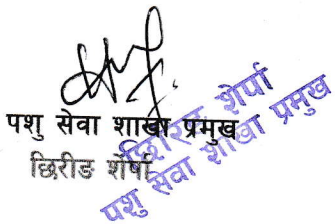 पशु सेवा शाखा प्रमुख
छिरीङ शेर्पा
छिरिङ शेर्पा
पशु सेवा शाखा प्रमुख